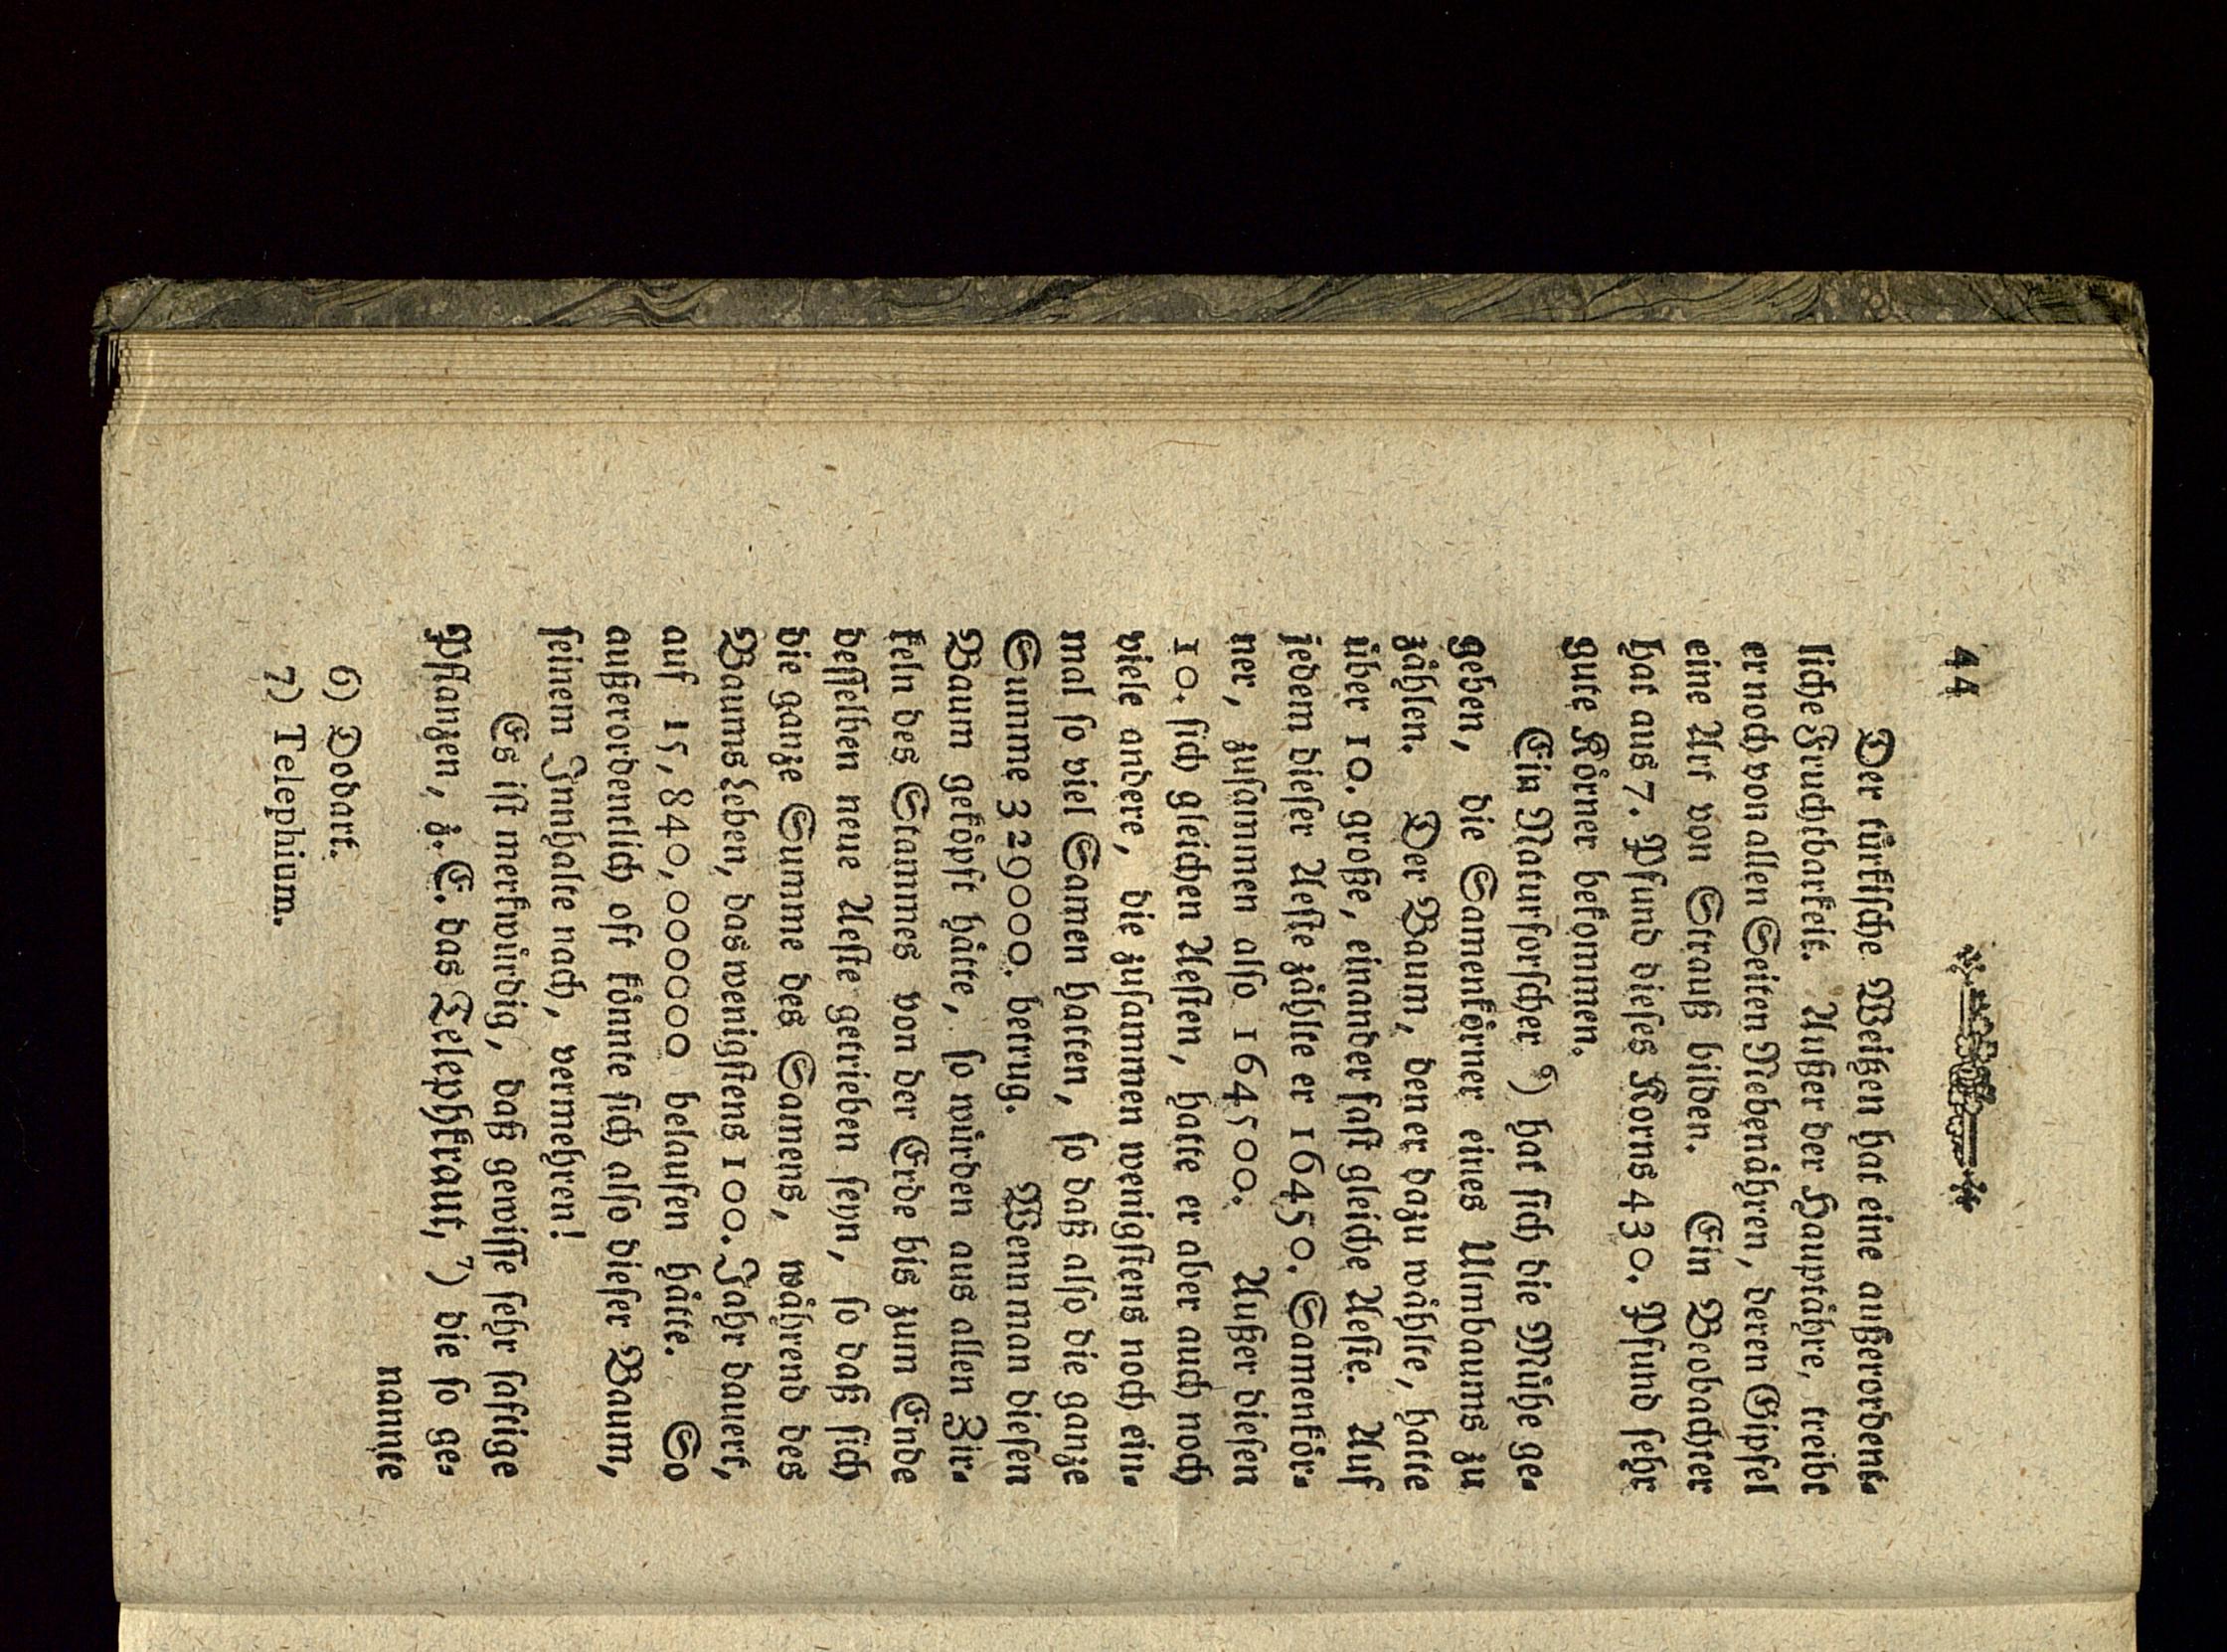 44
Der türkiſche Weitzen hat eine außerordent-
liche Fruchtbarkeit. Außer der Hauptähre, treibt
er noch von allen Seiten Nebenähren, deren Gipfel
eine Art von Strauß bilden. Ein Beobachter
hat aus 7. Pfund dieſes Korns 430. Pfund ſehr
gute Körner bekommen.
Ein Naturforſcher ⁶) hat ſich die Mühe ge-
geben, die Samenkörner eines Ulmbaums zu
zählen. Der Baum, den er dazu wählte, hatte
über 10. große, einander faſt gleiche Aeſte. Auf
jedem dieſer Aeſte zählte er 16450. Samenkör-
ner, zuſammen alſo 164500. Außer dieſen
10. ſich gleichen Aeſten, hatte er aber auch noch
viele andere, die zuſammen wenigſtens noch ein-
mal ſo viel Samen hatten, ſo daß alſo die ganze
Summe 329000. betrug. Wenn man dieſen
Baum geköpft hätte, ſo würden aus allen Zir-
keln des Stammes von der Erde bis zum Ende
deſſelben neue Aeſte getrieben ſeyn, ſo daß ſich
die ganze Summe des Samens, während des
Baums Leben, das wenigſtens 100. Jahr dauert,
auf 15,840,000000 belaufen hätte. So
außerordentlich oft könnte ſich alſo dieſer Baum,
ſeinem Innhalte nach, vermehren!
Es iſt merkwürdig, daß gewiſſe ſehr ſaftige
Pflanzen, z. E. das Telephkraut, ⁷) die ſo ge-
nannte
6) Dodart.
7) Telephium.